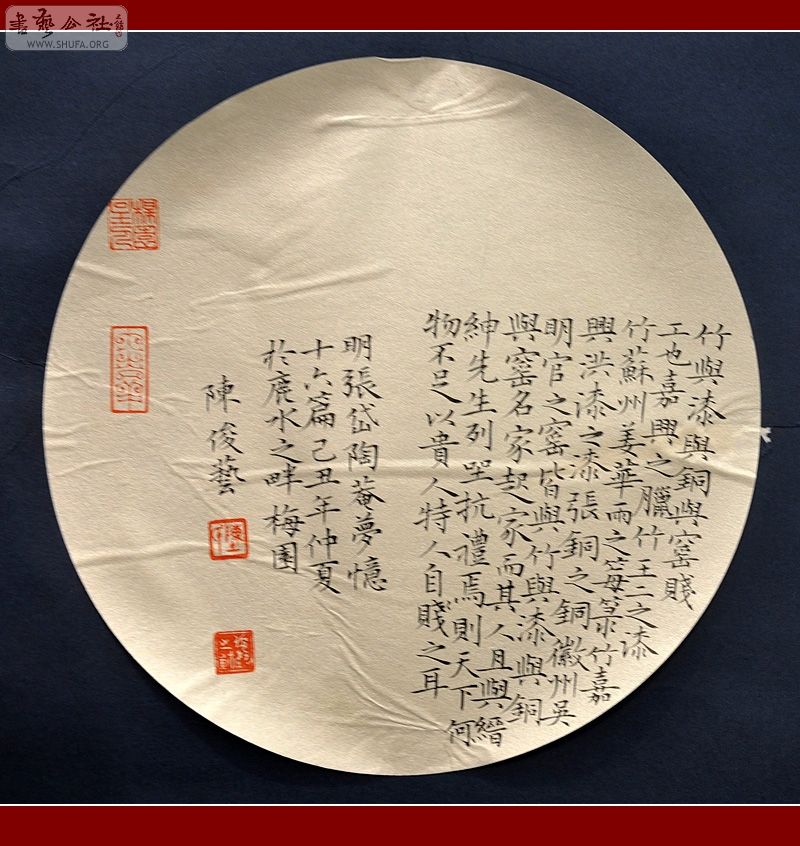 書藝公社
WWW.SHUFA.ORG
竹與漆與銅與窰賤
工也嘉興之臘竹王二之漆
竹蘇州姜華雨之箓竹嘉
興洪漆之漆張銅之銅徽州吳
明官之窰皆與竹與漆與銅
與窰名家起家而其人且與縉
紳先生列坐抗禮焉則天下何
物不足以貴人特人自賤之耳
明張岱陶菴夢憶
十六篇己丑年仲夏
於鹿水之畔梅園
陳俊藝